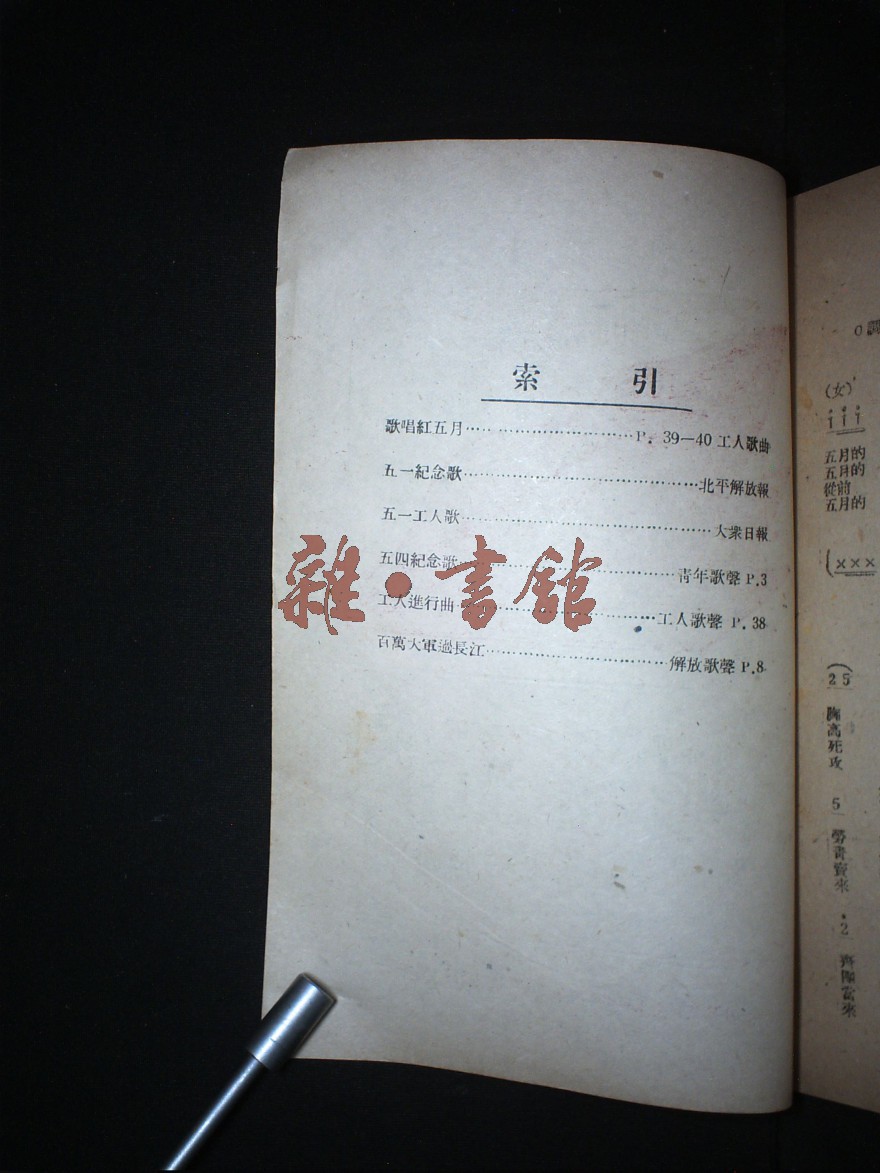 索 引
歌唱紅五月……………………………P. 39—40 工人歌曲
五一紀念歌……………………………北平解放報
五一工人歌……………………………大衆日報
五四紀念歌……………………………青年歌聲 P.3
工人進行曲……………………………工人歌聲 P. 38
百萬大軍過長江……………………………解放歌聲 P.8
雜·書館
(女)
i i i
五月的
五月的
從前
五月的
(×××
(25
胸高死攻
5
2